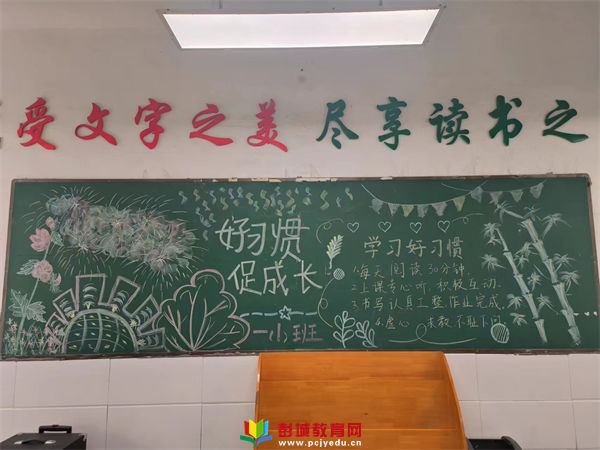 受文字之美 尽享读书之
好习惯
促成长
一小班
学习好习惯
1.每天阅读30分钟.
2.上课专心听 积极互动.
3.书写认真工整 作业完成
4.虚心 求教 不耻下问
彭城教育网
www.pcjyedu.com